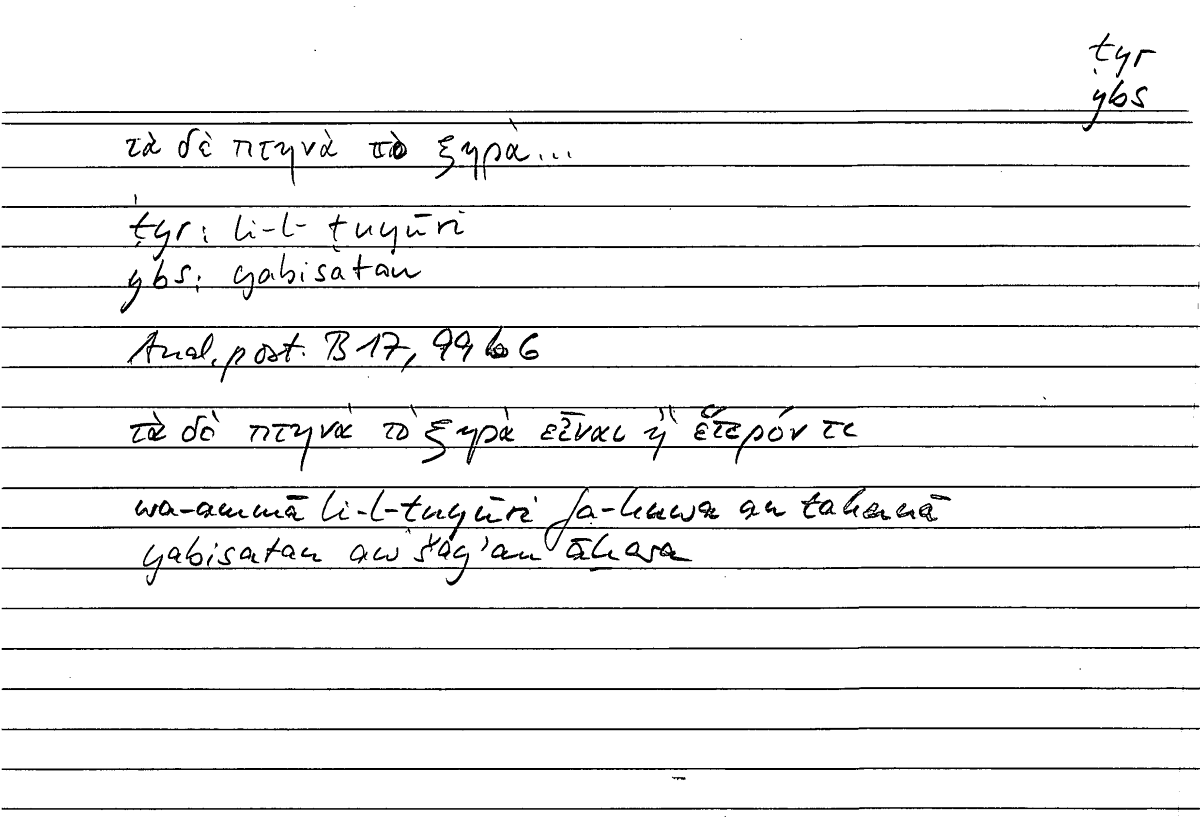 ṭyr
ybs
τὰ δὲ πτηνὰ τὸ ξηρὰ...
ṭyr: li-l-ṭuyūri
ybs: yabisatan
Anal. post. B 17, 99 b 6
τὰ δὲ πτηνὰ τὸ ξηρὰ εἶναι ἢ ἕτερόν τι
wa-ammā li-l-ṭuyūri fa-huwa an takūnā
yabisatan aw šay'an āḫara